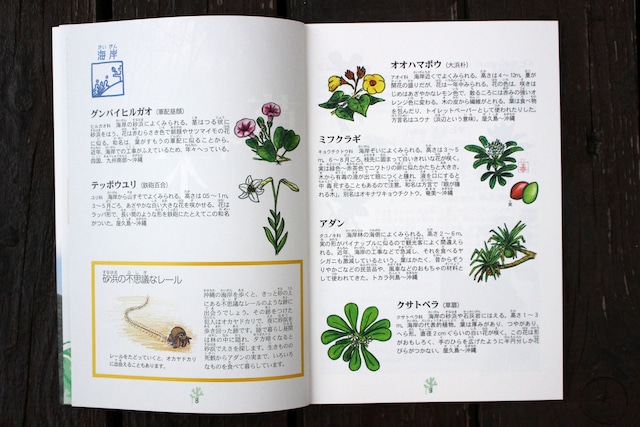 かいがん
海岸
グンバイヒルガオ（軍配昼顔）
ヒルガオ科 海岸の砂浜によくみられる。茎はつる状に
砂浜をはう。花は赤むらさき色で朝顔やサツマイモの花
に似る。和名は、葉がすもうの軍配に似ることから。
近年、海岸での工事がふえているため、年々へっている。
四国、九州南部〜沖縄
テッポウユリ（鉄砲百合）
ユリ科 海岸から山すそでよくみられる。高さは0.5〜1m。
3〜5月ごろ、あざやかな白い大きな花を咲かせる。花は
ラッパ形で、長い筒のような形を鉄砲にたとえてこの和名
がついた。屋久島〜沖縄
砂浜の不思議なレール
沖縄の海岸を歩くと、きっと砂の上
にある不思議なレールのような跡に
出会うでしょう。その跡をつけた
犯人はオカヤドカリで、夜に砂浜を
歩き回った跡です。陸で暮らし昼間
は林の中に隠れ、夕方暗くなると
砂浜でえさを探します。生きものの
死骸からアダンの実まで、いろいろ
なものを食べて暮らしています。
レールをたどっていくと、オカヤドカリ
に出会えることもあります。
8
オオハマボウ（大浜朴）
アオイ科 海岸近くでよくみられる。高さは4〜12m。夏が
開花の盛りだが、花は一年中みられる。花の色は、咲きは
じめはあざやかなレモン色で、散るころには赤みの強いオ
レンジ色に変わる。木の皮から繊維がとれる。葉は食べ物
を包んだり、トイレットペーパーとして使われたりした。
方言名はユウナ（浜辺という意味）。屋久島〜沖縄
ミフクラギ
キョウチクトウ科 海岸ぞいによくみられる。高さは3〜5m。
6〜8月ごろ、枝先に固まって白いきれいな花が咲く。
実は緑色〜赤茶色でニワトリの卵に似たかたちと大きさ。
木から有毒の液が出て目につくと腫れ、液を口にすると
中毒死することもあるので注意。和名は方言で「眼が腫
れる木」。別名はオキナワキョウチクトウ。奄美〜沖縄
実
アダン
タコノキ科 海岸林の海側によくみられる。高さ2〜6m。
実の形がパイナップルに似るので観光客によく間違えら
れる。近年、海岸の工事などで急減し、それを食べるヤ
シガニも激減している。葉はかたく、昔からぞう
りやかごなどの民芸品や、風車などのおもちゃの材料と
して使われてきた。トカラ列島〜沖縄
クサトベラ（草扉）
クサトベラ科 海岸の砂浜や石灰岩にはえる。高さ1〜3
m。海岸の代表的植物。葉は厚みがあり、つやがあり、
へら形。直径2cmぐらいの白い花が咲く。この花は形
がおもしろく、手のひらを広げたように半円分しか花
びらがつかない。屋久島〜沖縄